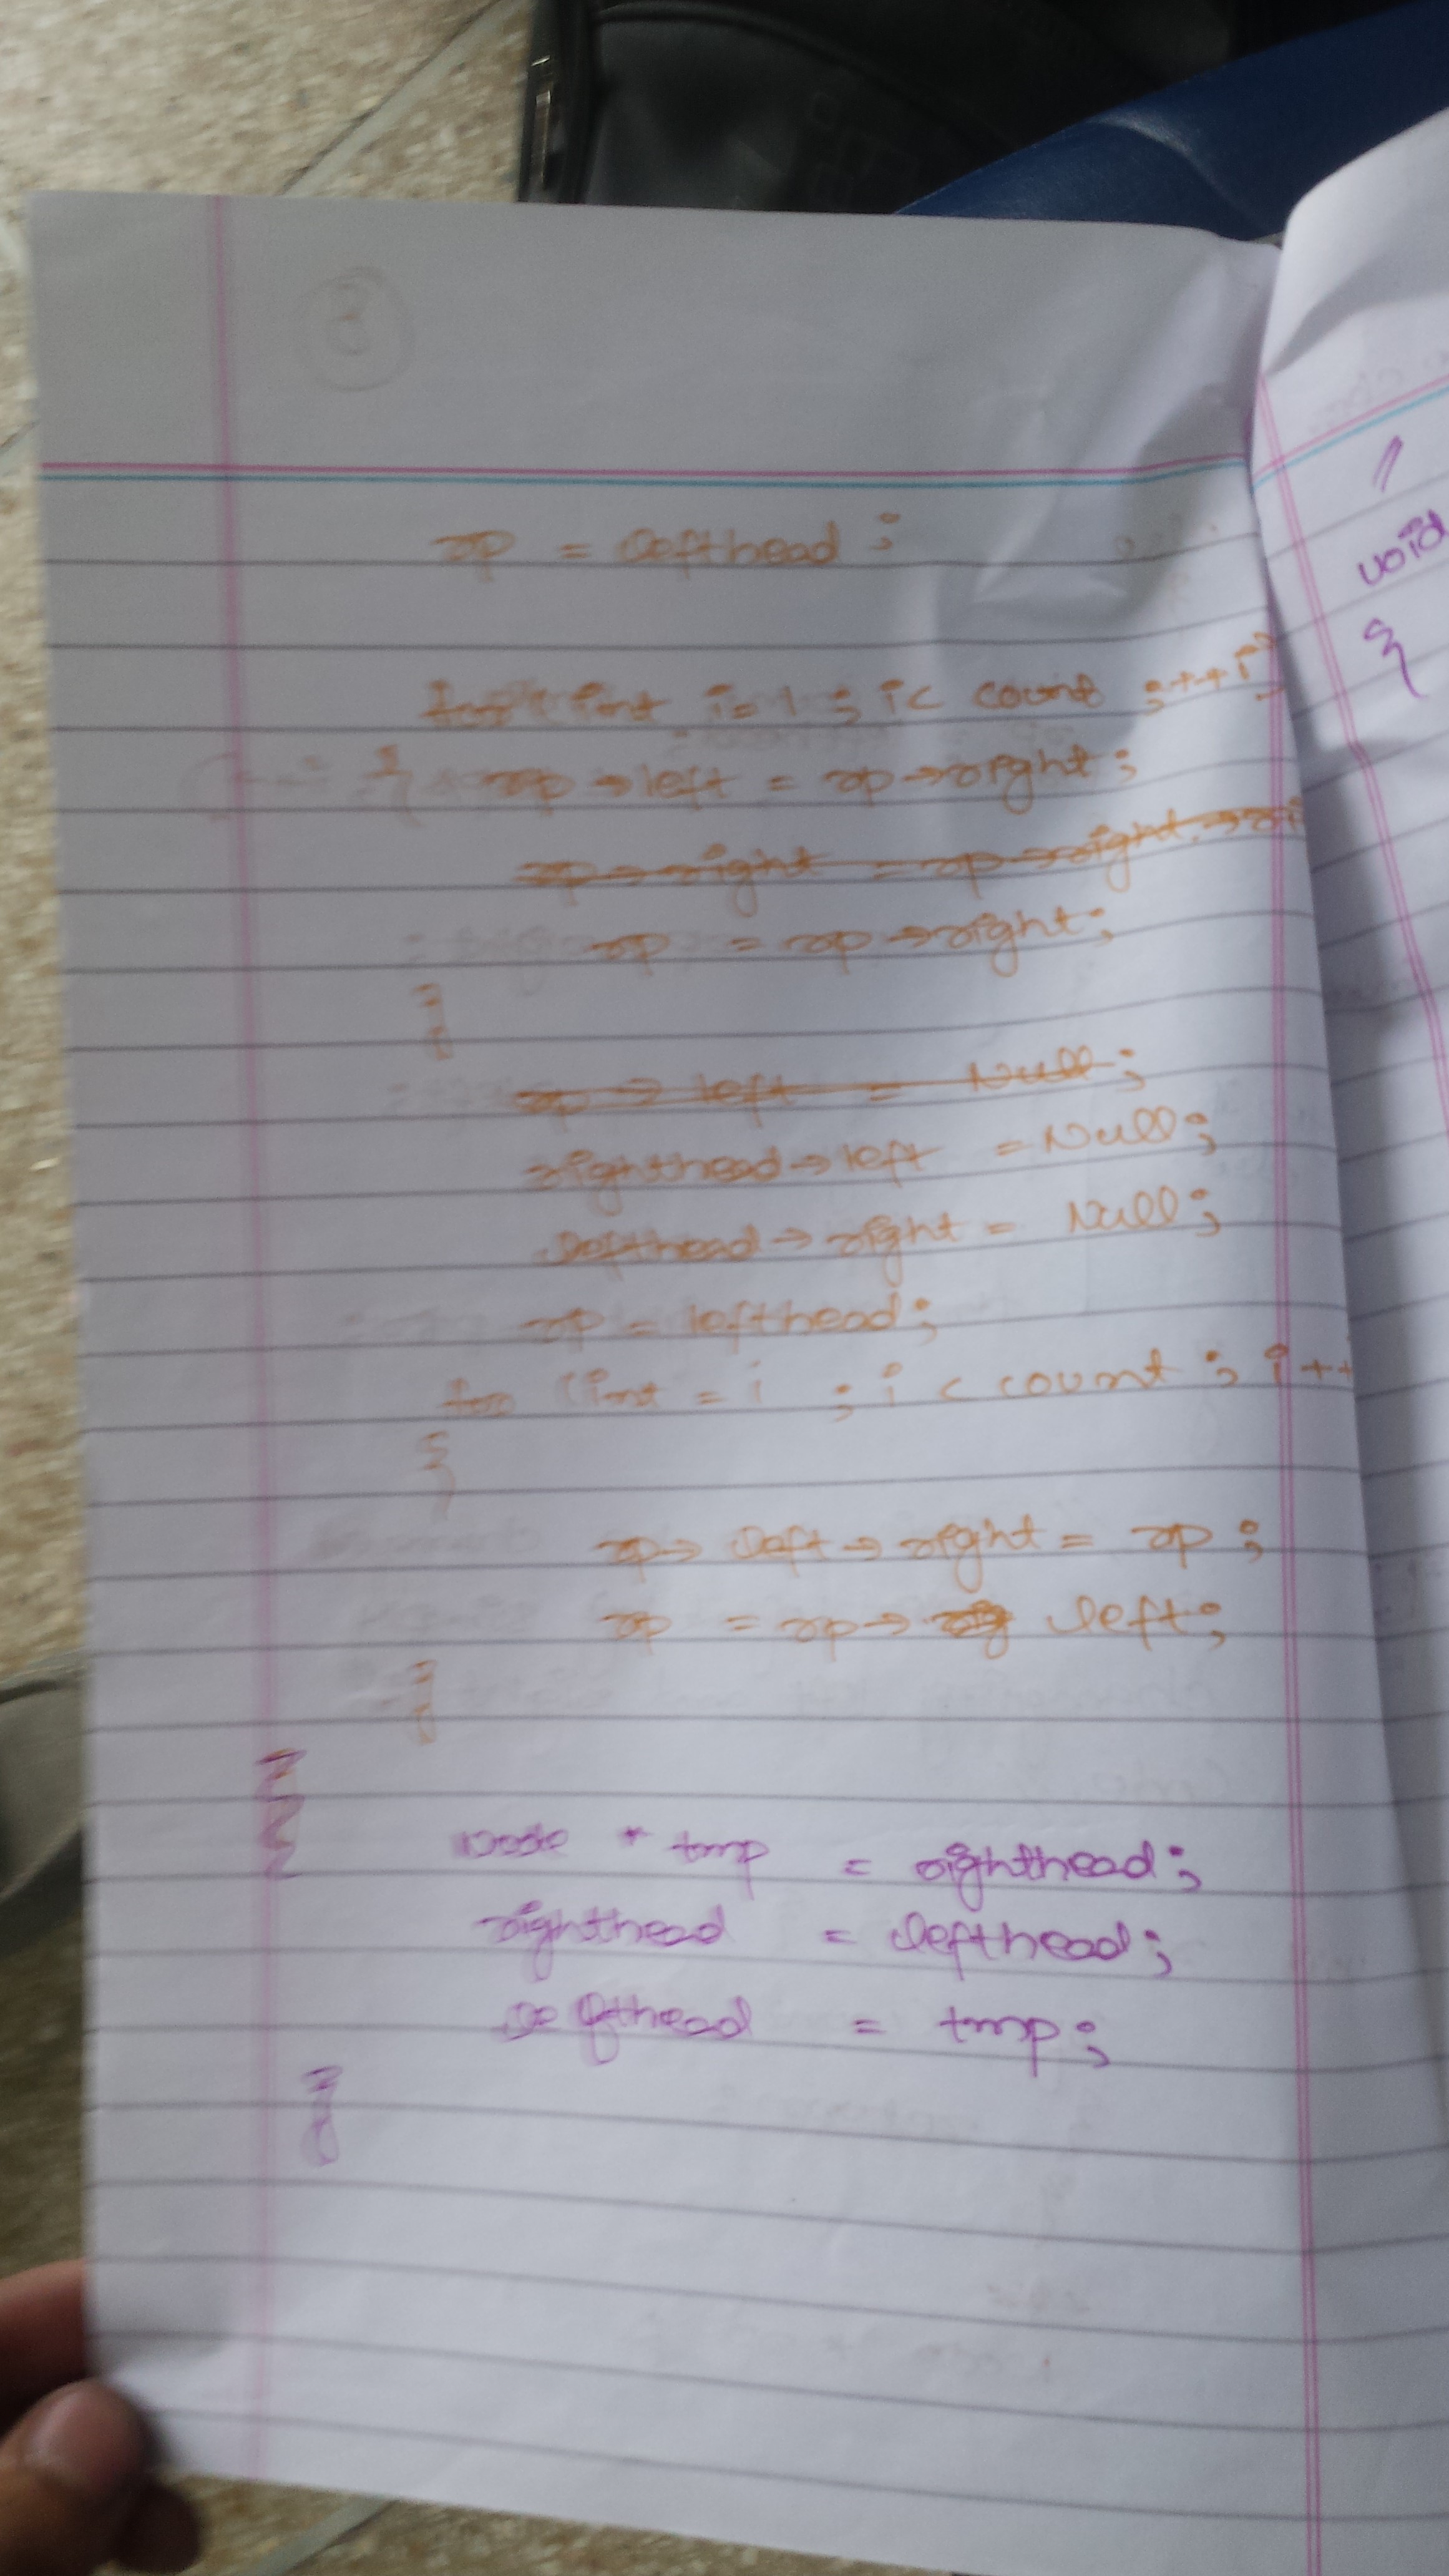 ③
rp = lefthead ;
for ( int i=1 ; i< count ; ++i)
{ rp → left = rp → right ;
rp → right = rp → right →
rp = rp → right ;
}
rp → left = Null ;
righthead → left = Null ;
lefthead → right = Null ;
rp = lefthead ;
for (int = i ; i < count ; i ++
{
rp → left → right = rp ;
rp = rp → left ;
}
Node * tmp = righthead ;
righthead = lefthead ;
lefthead = tmp ;
}
void
{